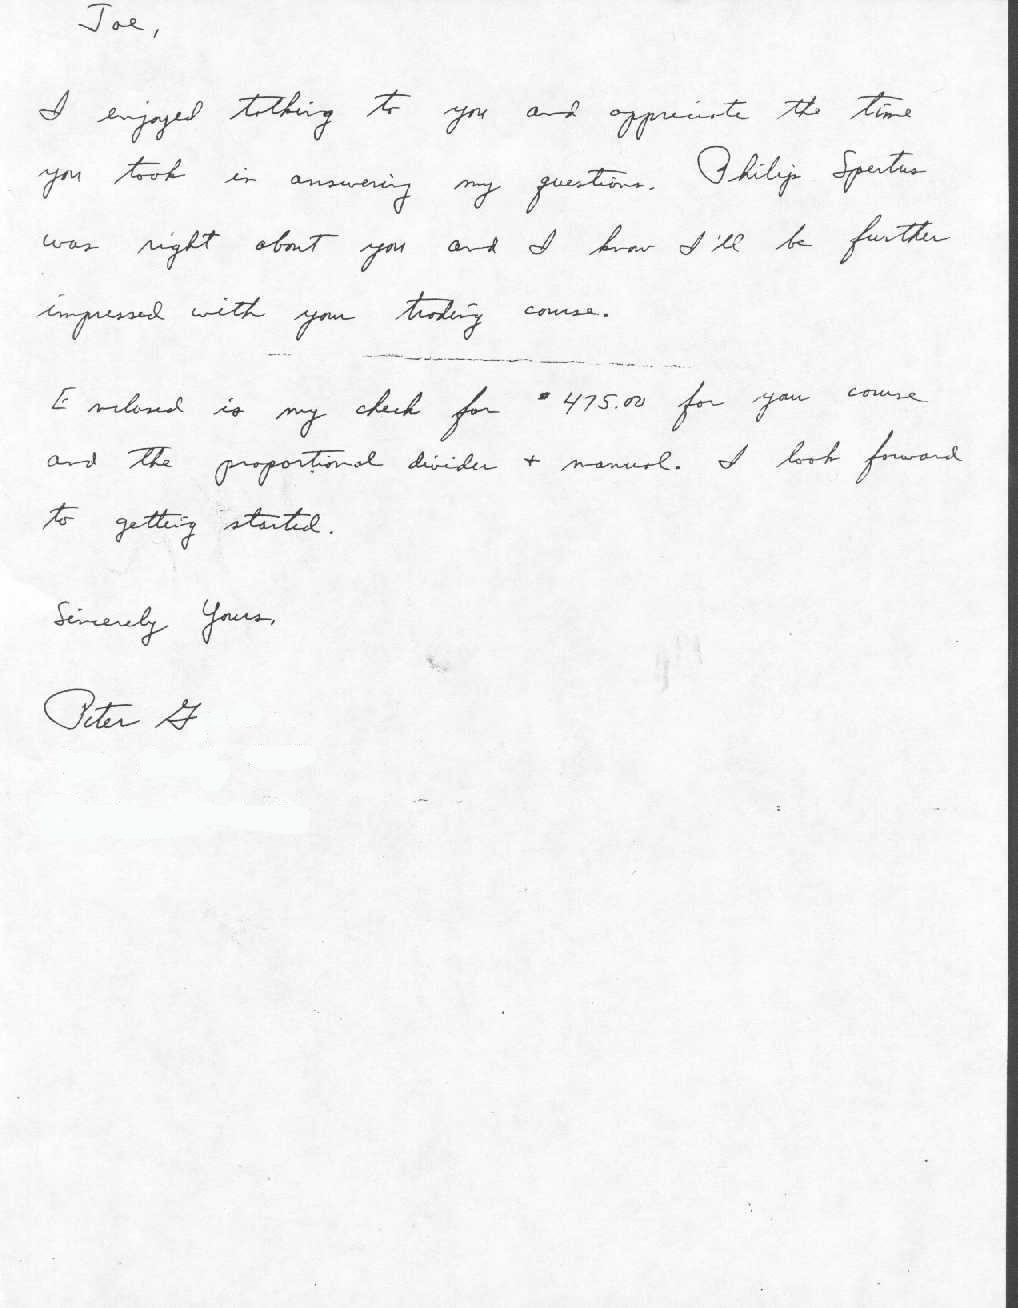 Joe,
I enjoyed talking to you and appreciate the time
you took in answering my questions. Philip Spertus
was right about you and I know I'll be further
impressed with your trading course.
Enclosed is my check for $475.00 for your course
and the proportional divider + manual. I look forward
to getting started.
Sincerely Yours,
Peter G